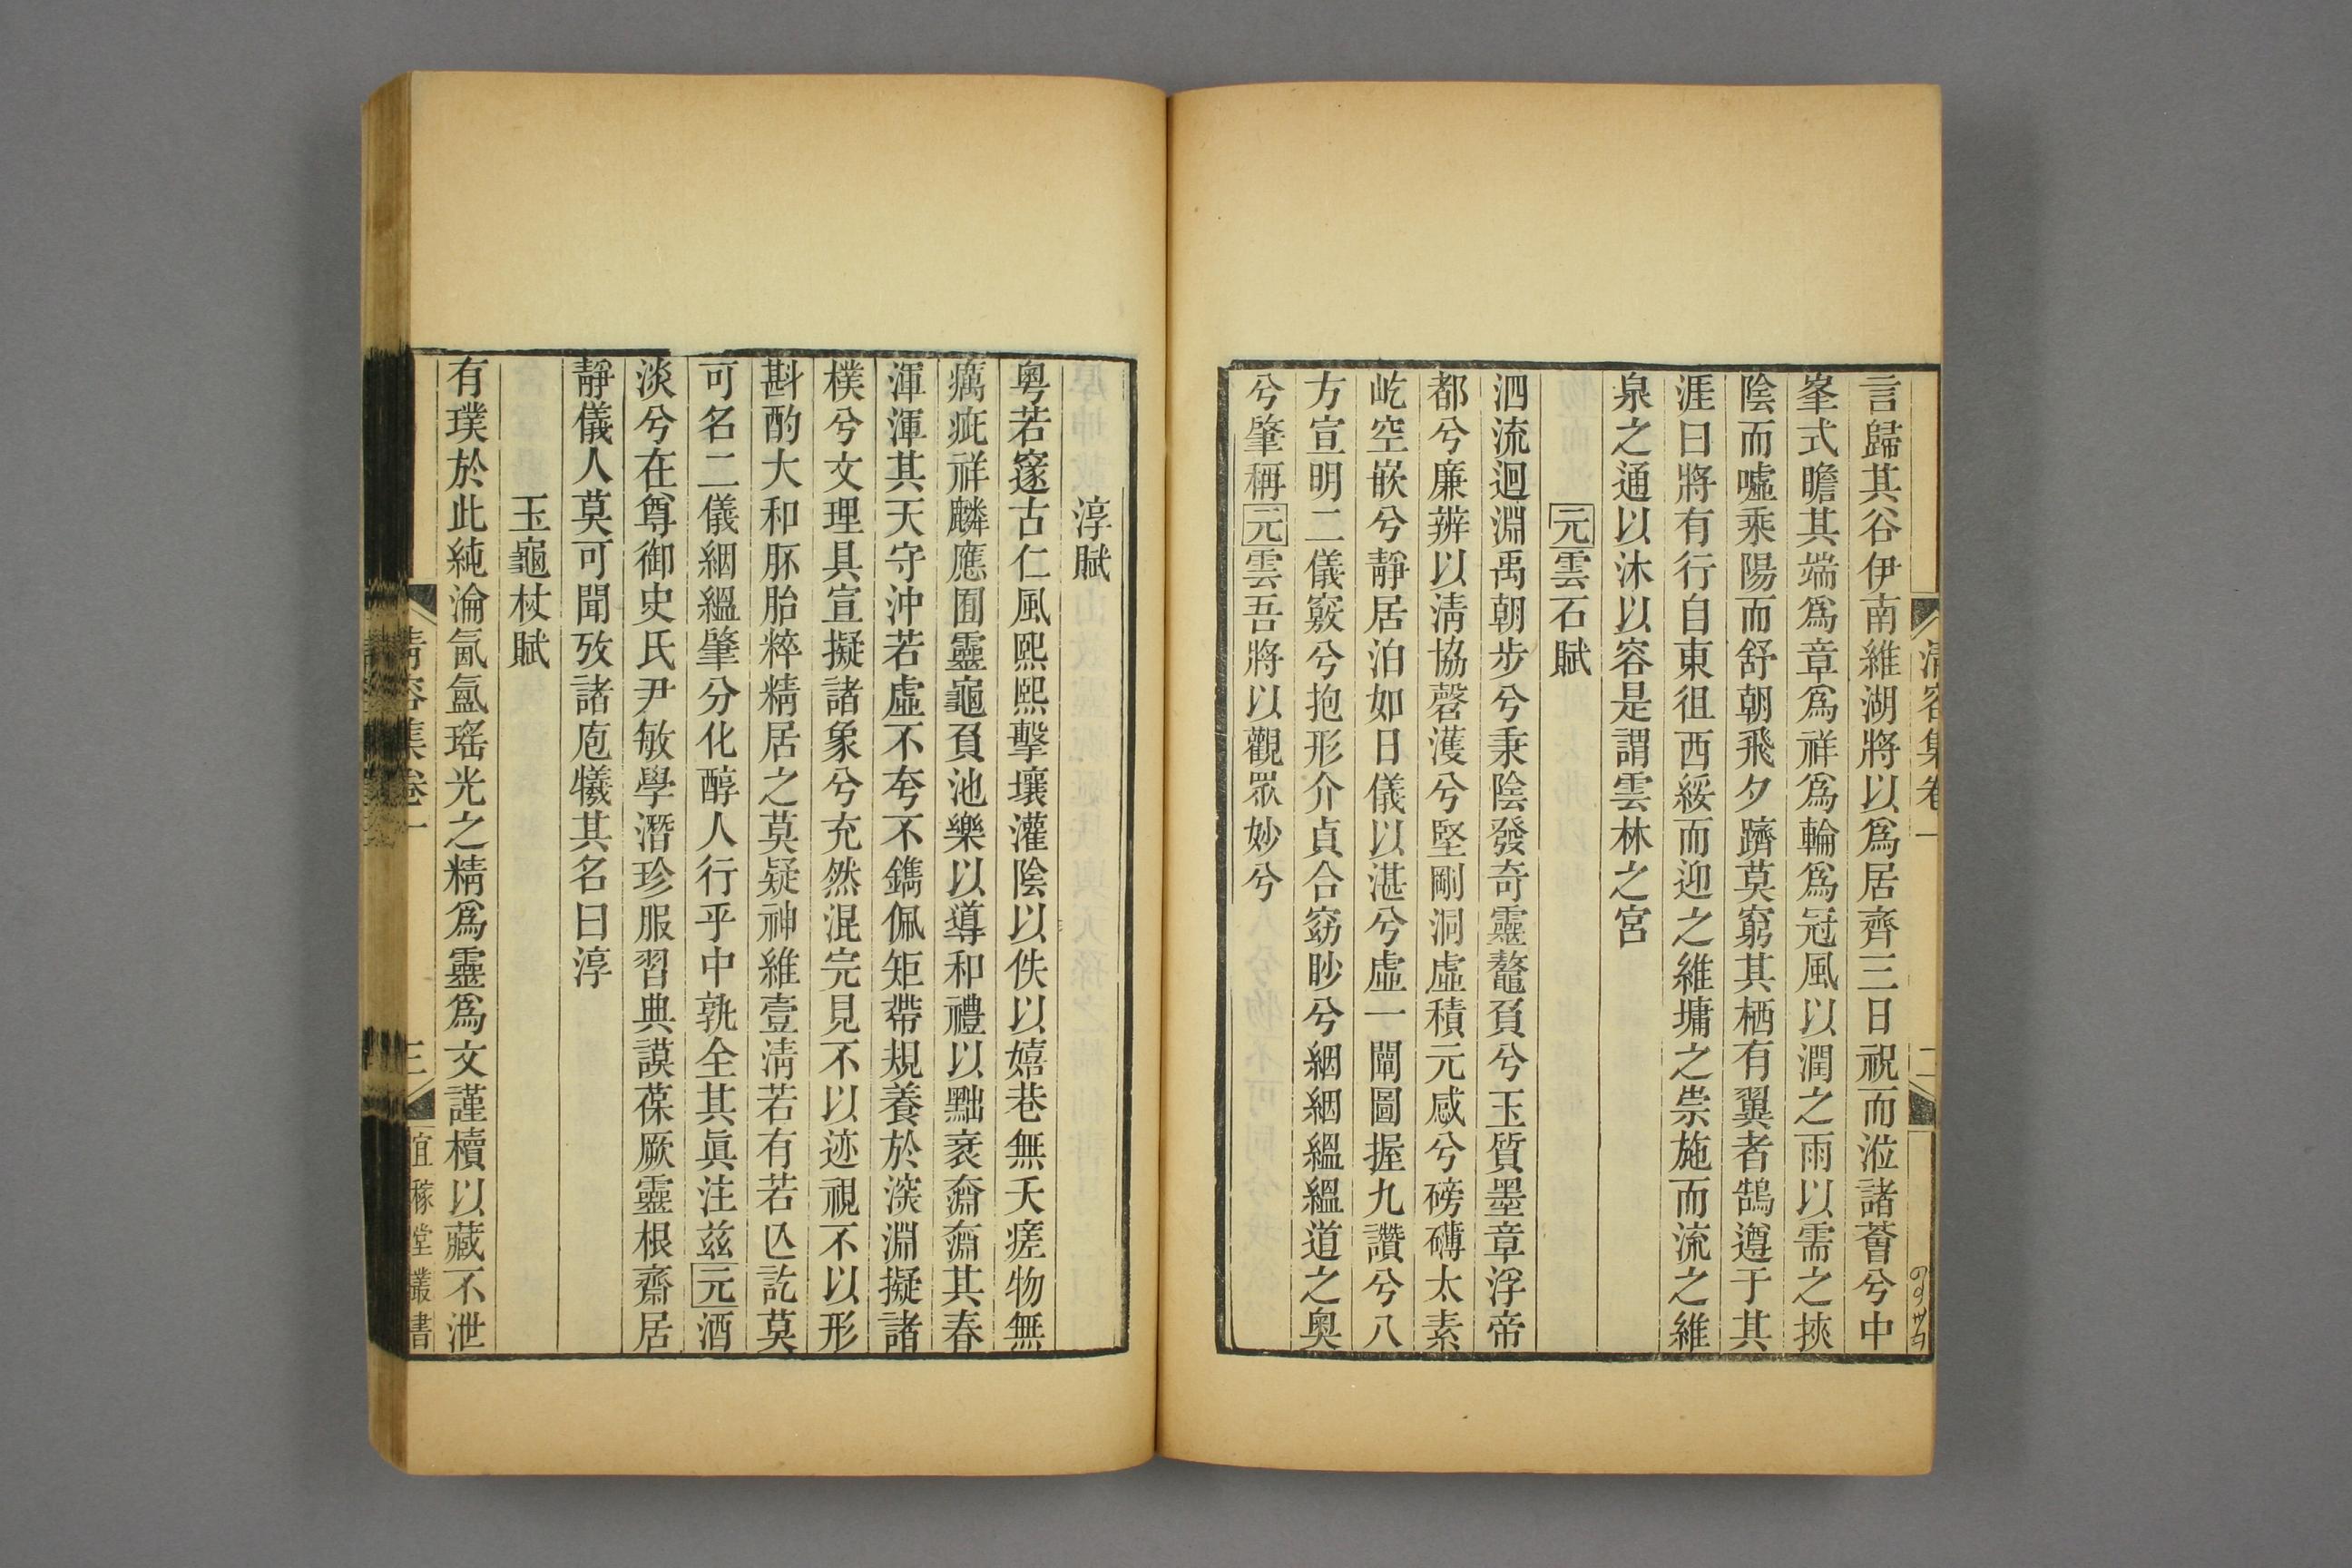 清容集卷一 二
言歸其谷伊南維湖將以爲居齊三日祝而涖諸薈兮中
峯式瞻其端爲章爲祥爲輪爲冠風以潤之雨以需之挾
陰而噓乘陽而舒朝飛夕躋莫窮其栖有翼者鵠遵于其
涯曰將有行自東徂西綏而迎之維墉之祟施而流之維
泉之通以沐以容是謂雲林之宮
元雲石賦
泗流迴淵禹朝步兮秉陰發奇靈鼇負兮玉質墨章浮帝
都兮廉辨以淸協磬濩兮堅剛洞虛積元感兮磅礴太素
屹空嵌兮靜居泊如日儀以湛兮虛一闡圖握九讚兮八
方宣明二儀竅兮抱形介貞合窈眇兮絪絪縕縕道之奧
兮肇稱元雲吾將以觀眾妙兮
淳賦
粵若邃古仁風熙熙擊壤灌陰以佚以嬉巷無夭瘥物無
癘疵祥麟應囿靈龜負池樂以導和禮以黜衺奫奫其春
渾渾其天守沖若虛不夸不鐫佩矩帶規養於深淵擬諸
樸兮文理具宣擬諸象兮充然混完見不以迹視不以形
斟酌大和胚胎粹精居之莫疑神維壹淸若有若亾訖莫
可名二儀絪縕肇分化醇人行乎中孰全其眞注兹元酒
淡兮在尊御史氏尹敏學潛珍服習典謨葆厥靈根齋居
靜儀人莫可聞攷諸庖犧其名曰淳
玉龜杖賦
有璞於此純淪氤氳瑤光之精爲靈爲文謹櫝以藏不泄
清容集卷一 三 宜稼堂叢書